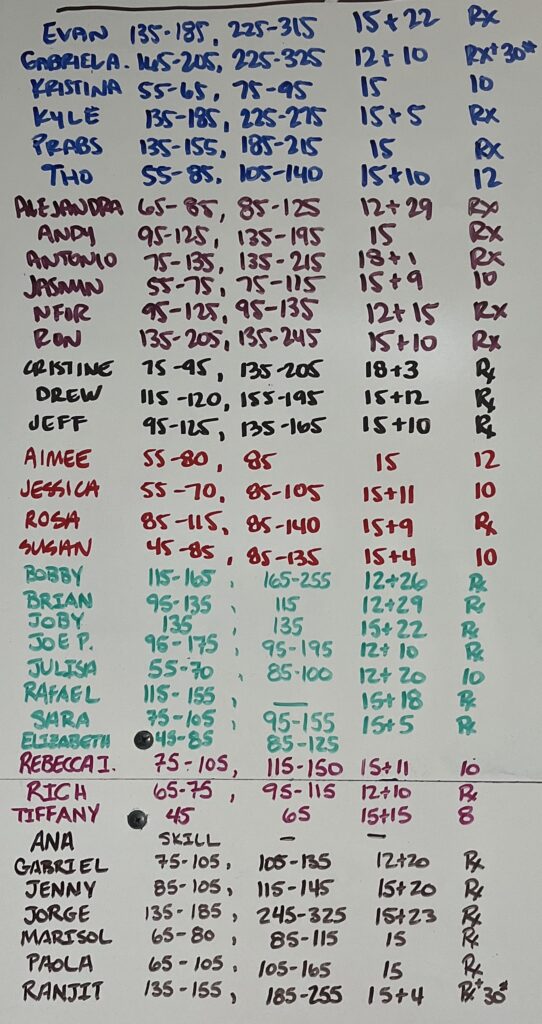 EVAN 135-185, 225-315 15+22 Rx
GABRIELA. 165-205, 225-325 12+10 Rx+30#
KRISTINA 55-65, 75-95 15 10
KYLE 135-185, 225-275 15+5 Rx
PRABS 135-155, 185-215 15 Rx
THO 55-85, 105-140 15+10 12
ALEJANDRA 65-85, 85-125 12+29 Rx
ANDY 95-125, 135-195 15 Rx
ANTONIO 75-135, 135-215 18+1 Rx
JASMIN 55-75, 75-115 15+9 10
NFOR 95-125, 95-135 12+15 Rx
RON 135-205, 135-245 15+10 Rx
CRISTINE 75-95, 135-205 18+3 Rx
DREW 115-120, 155-195 15+12 Rx
JEFF 95-125, 135-165 15+10 Rx
AIMEE 55-80, 85 15 12
JESSICA 55-70, 85-105 15+11 10
ROSA 85-115, 85-140 15+9 Rx
SUSAN 45-85, 85-135 15+4 10
BOBBY 115-165, 165-255 12+26 Rx
BRIAN 95-135, 115 12+29 Rx
JOBY 135, 135 15+22 Rx
JOE P. 95-175, 95-195 12+10 Rx
JULISA 55-70, 85-100 12+20 10
RAFAEL 115-155, — 15+18 Rx
SARA 75-105, 95-155 15+5 Rx
ELIZABETH 45-85 85-125
REBECCA I. 75-105, 115-150 15+11 10
RICH 65-75, 95-115 12+10 Rx
TIFFANY 45, 65 15+15 8
ANA SKILL — —
GABRIEL 75-105, 105-135 12+20 Rx
JENNY 85-105, 115-145 15+20 Rx
JORGE 135-185, 245-325 15+23 Rx
MARISOL 65-80, 85-115 15 Rx
PAOLA 65-105, 105-165 15 Rx
RANJIT 135-155, 185-255 15+4 Rx+30#